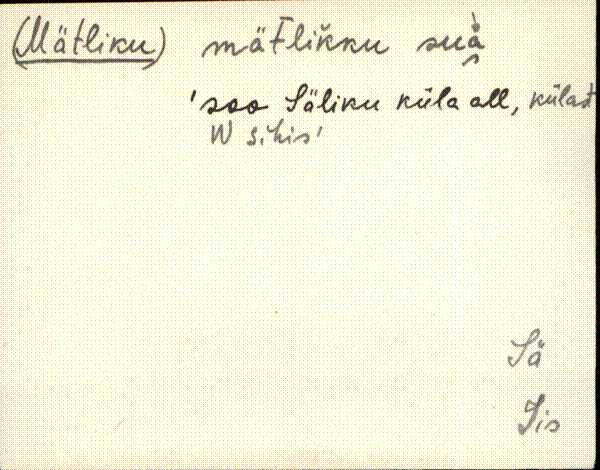 (Mätliku) mäƗlikku suà̭
'soo Säliku küla all, külast
W sihis'
Sä
Iis